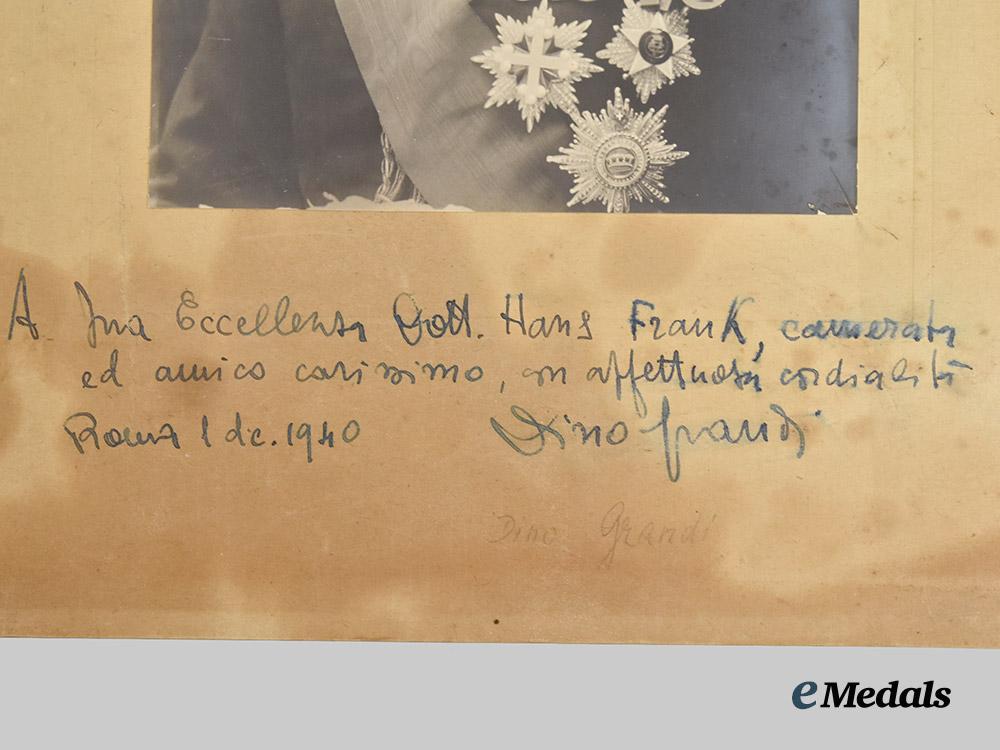 A Sua Eccellenza Dott. Hans Frank, camerata
ed amico carissimo, con affettuosa cordialità
Roma 1 dic. 1940 Dino Grandi
Dino Grandi
eMedals